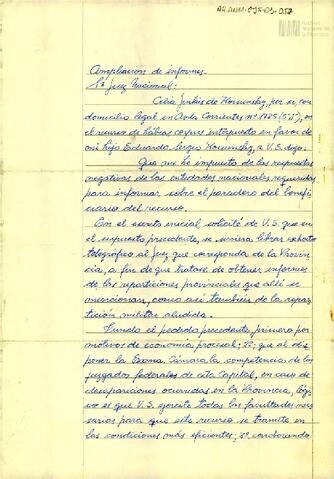 AR-ANM-CJF-03-057
Archivo
Nacional de
la Memoria
Ampliación de informes.
Sr. Juez Nacional:
Celia Jinkis de Korsunsky, por sí, con
domicilio legal en Avda. Corrientes nº 1785 (5º J), en
el recurso de hábeas corpus interpuesto en favor de
mi hijo Eduardo Sergio Korsunsky, a V.S. digo:
Que me he impuesto de las respuestas
negativas de las entidades nacionales requeridas
para informar sobre el paradero del benefi-
ciario del recurso.
En el escrito inicial solicité de V.S. que en
el supuesto precedente, se sirviera librar exhorto
telegráfico al juez que corresponda de la Provin-
cia, a fin de que tratase de obtener informes
de las reparticiones provinciales que allí se
mencionan, como así también de la repar-
tición militar aludida.
Fundo el pedido precedente, primero por
motivos de economía procesal; 2º: que al dis-
poner la Excma. Cámara la competencia de los
juzgados federales de esta Capital, en caso de
desapariciones ocurridas en la Provincia, lógi-
co es que V.S. ejercite todas las facultades nece-
sarias para que este recurso se tramite en
las condiciones más eficientes; 3º corroborando